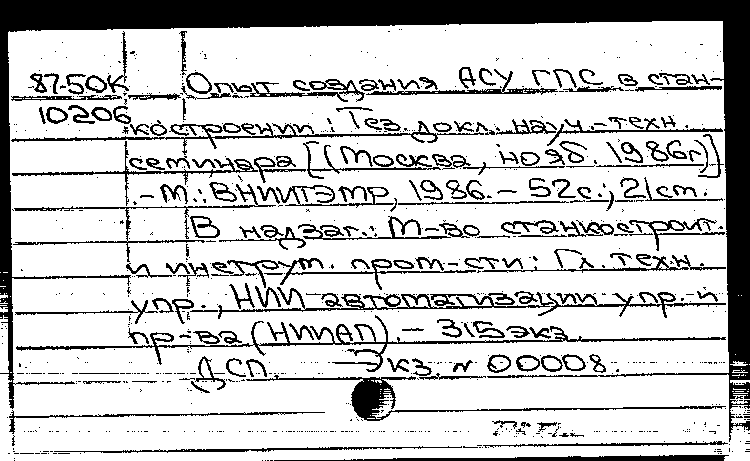 87-50К Опыт создания АСУ ГПС в стан-
10206 костроении : Тез. докл. науч.-техн.
семинара [(Москва, нояб. 1986г)]
.-М.: ВНИИТЭМР, 1986. - 52с.; 21ст.
В надзаг.: М-во станкостроит.
и инструм. пром-сти; Гл. техн.
упр., НИИ автоматизации упр. и
пр-ва (НИИАП). - 315 экз.
ДСП. Экз. № 00008.